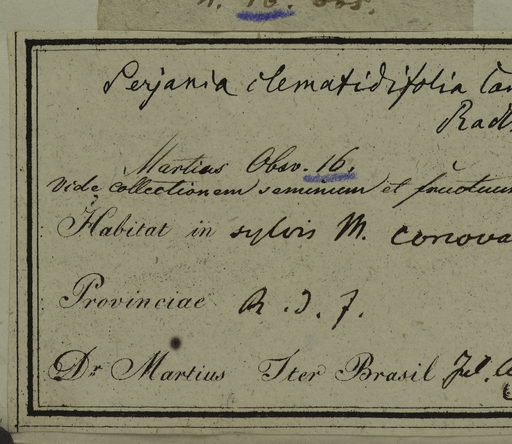 n. 16. obs.
Serjania clematidifolia Cam
Radlk
Martius Obsv. 16.
Vide collectionem seminium et fructuum
Habitat in sylvis M. corcova
Provinciae R. d. J.
Dr Martius Iter Brasil Jul.